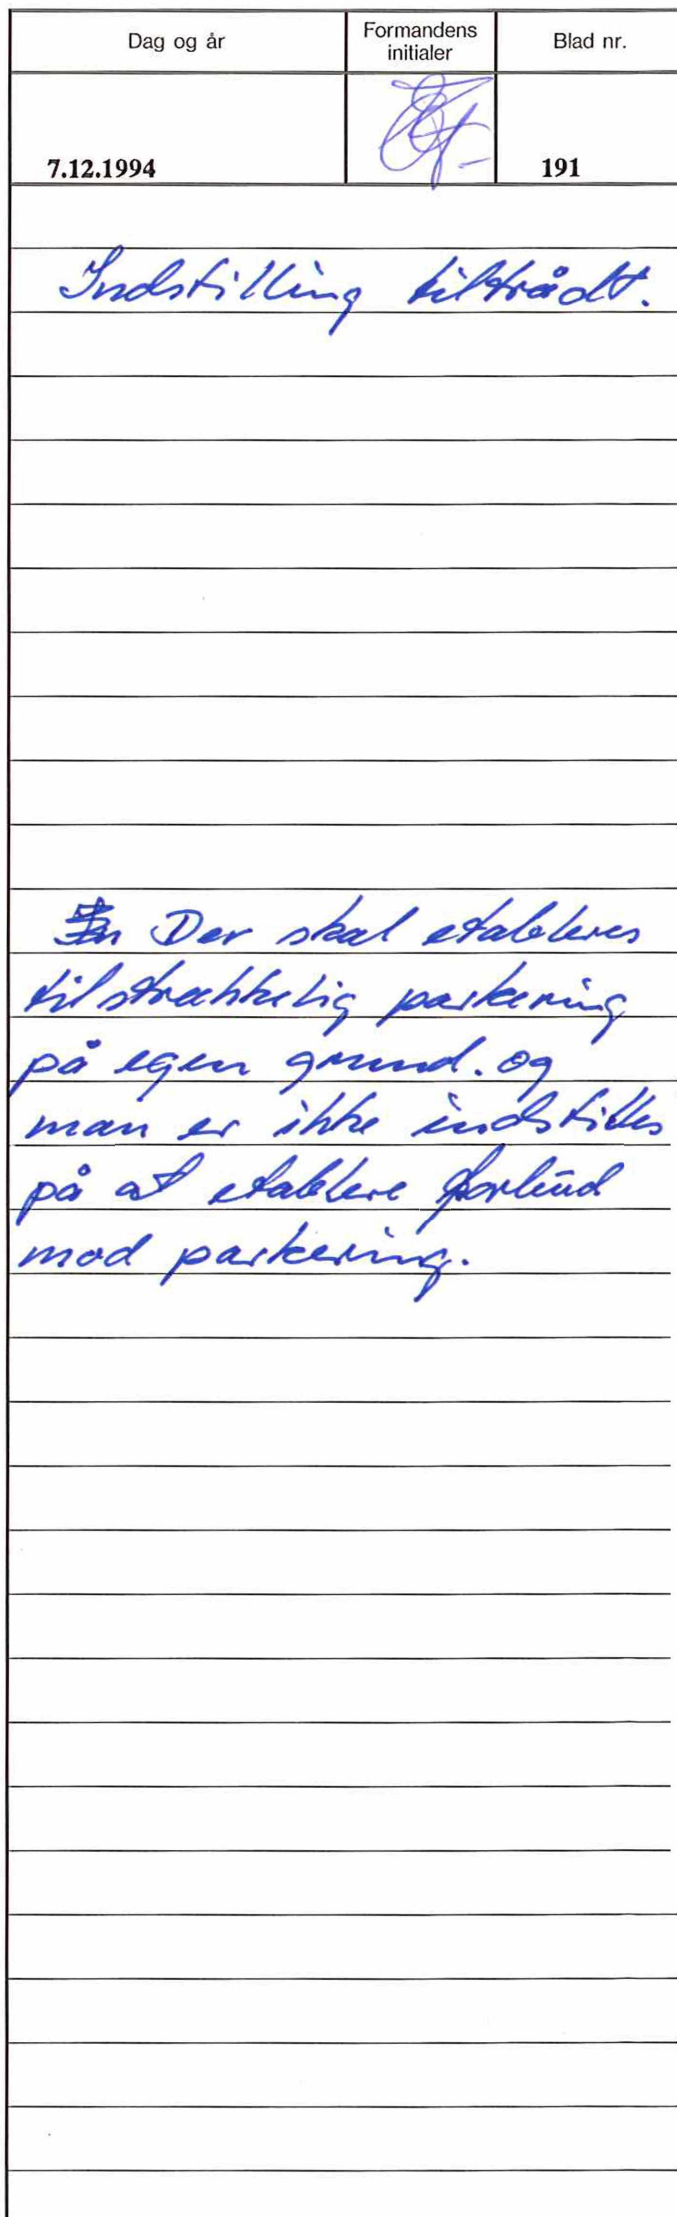 Dag og år
Formandens
initialer
Blad nr.
7.12.1994
191
Indstilling tiltrådt.
Der skal etableres
tilstrækkelig parkering
på egen grund. og
man er ikke indstillet
på at etablere forbud
mod parkering.